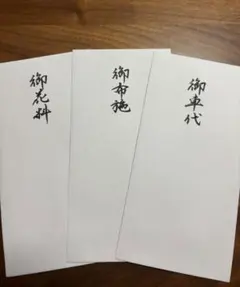 御花料
御布施
御車代